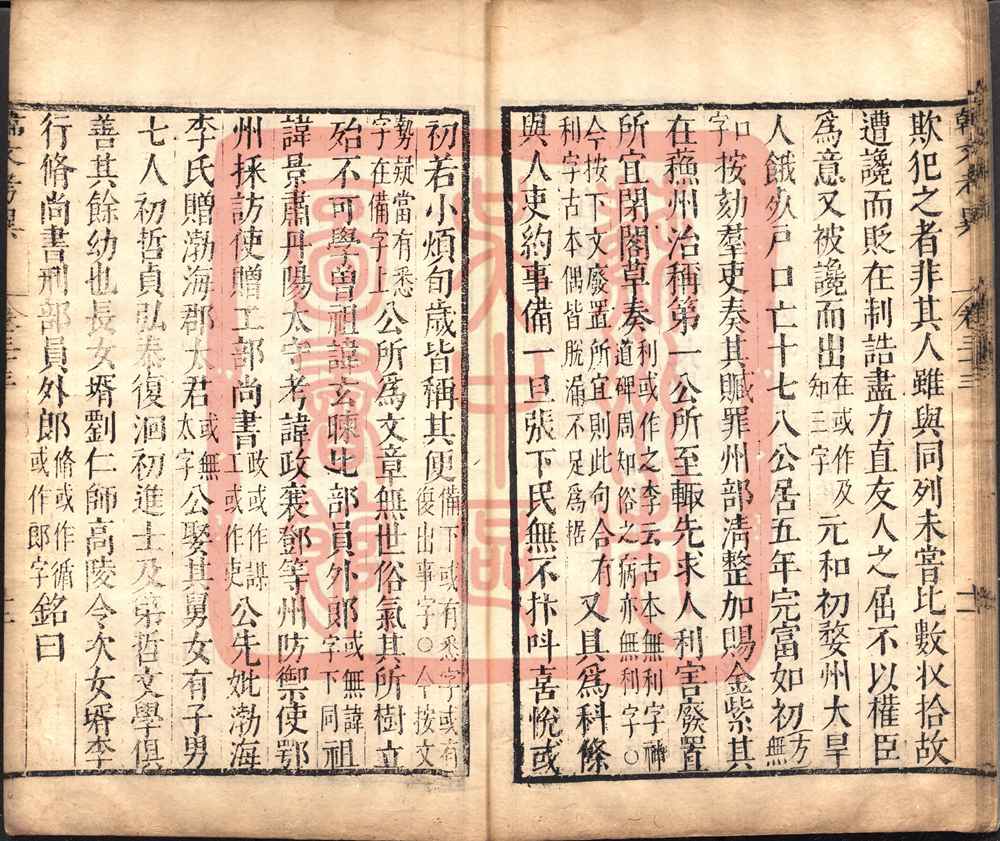 欺犯之者非其人雖與同列未嘗比數收拾故
遭讒而貶在制誥盡力直友人之屈不以權臣
爲意又被讒而出在或作及知三字元和初婺州大旱
人餓死戶口亡十七八公居五年完富如初方無
口字按劾羣吏奏其贓罪州部清整加賜金紫其
在蘇州治稱第一公所至輙先求人利害廢置
所宜閉閣草奏利或作之李云古本無利字神道碑周知俗之病亦無利字○
今按下文廢置所宜則此句合有利字古本偶皆脫漏不足爲据又具爲科條
與人吏約事備一旦張下民無不抃呌喜悅或
初若小煩旬歲皆稱其便備下或有悉字或有復出事字○今按文
勢疑當有悉字在備字上公所爲文章無世俗氣其所樹立
殆不可學曾祖諱玄暕比部員外郎或無諱字下同祖
諱景肅丹陽太守考諱政襄鄧等州防禦使鄂
州採訪使贈工部尚書政或作謀工或作吏公先妣渤海
李氏贈渤海郡太君或無太字公娶其舅女有子男
七人初哲貞弘泰復洄初進士及第哲文學俱
善其餘幼也長女壻劉仁師高陵令次女壻李
行脩尚書刑部員外郎脩或作循或作郎字銘曰